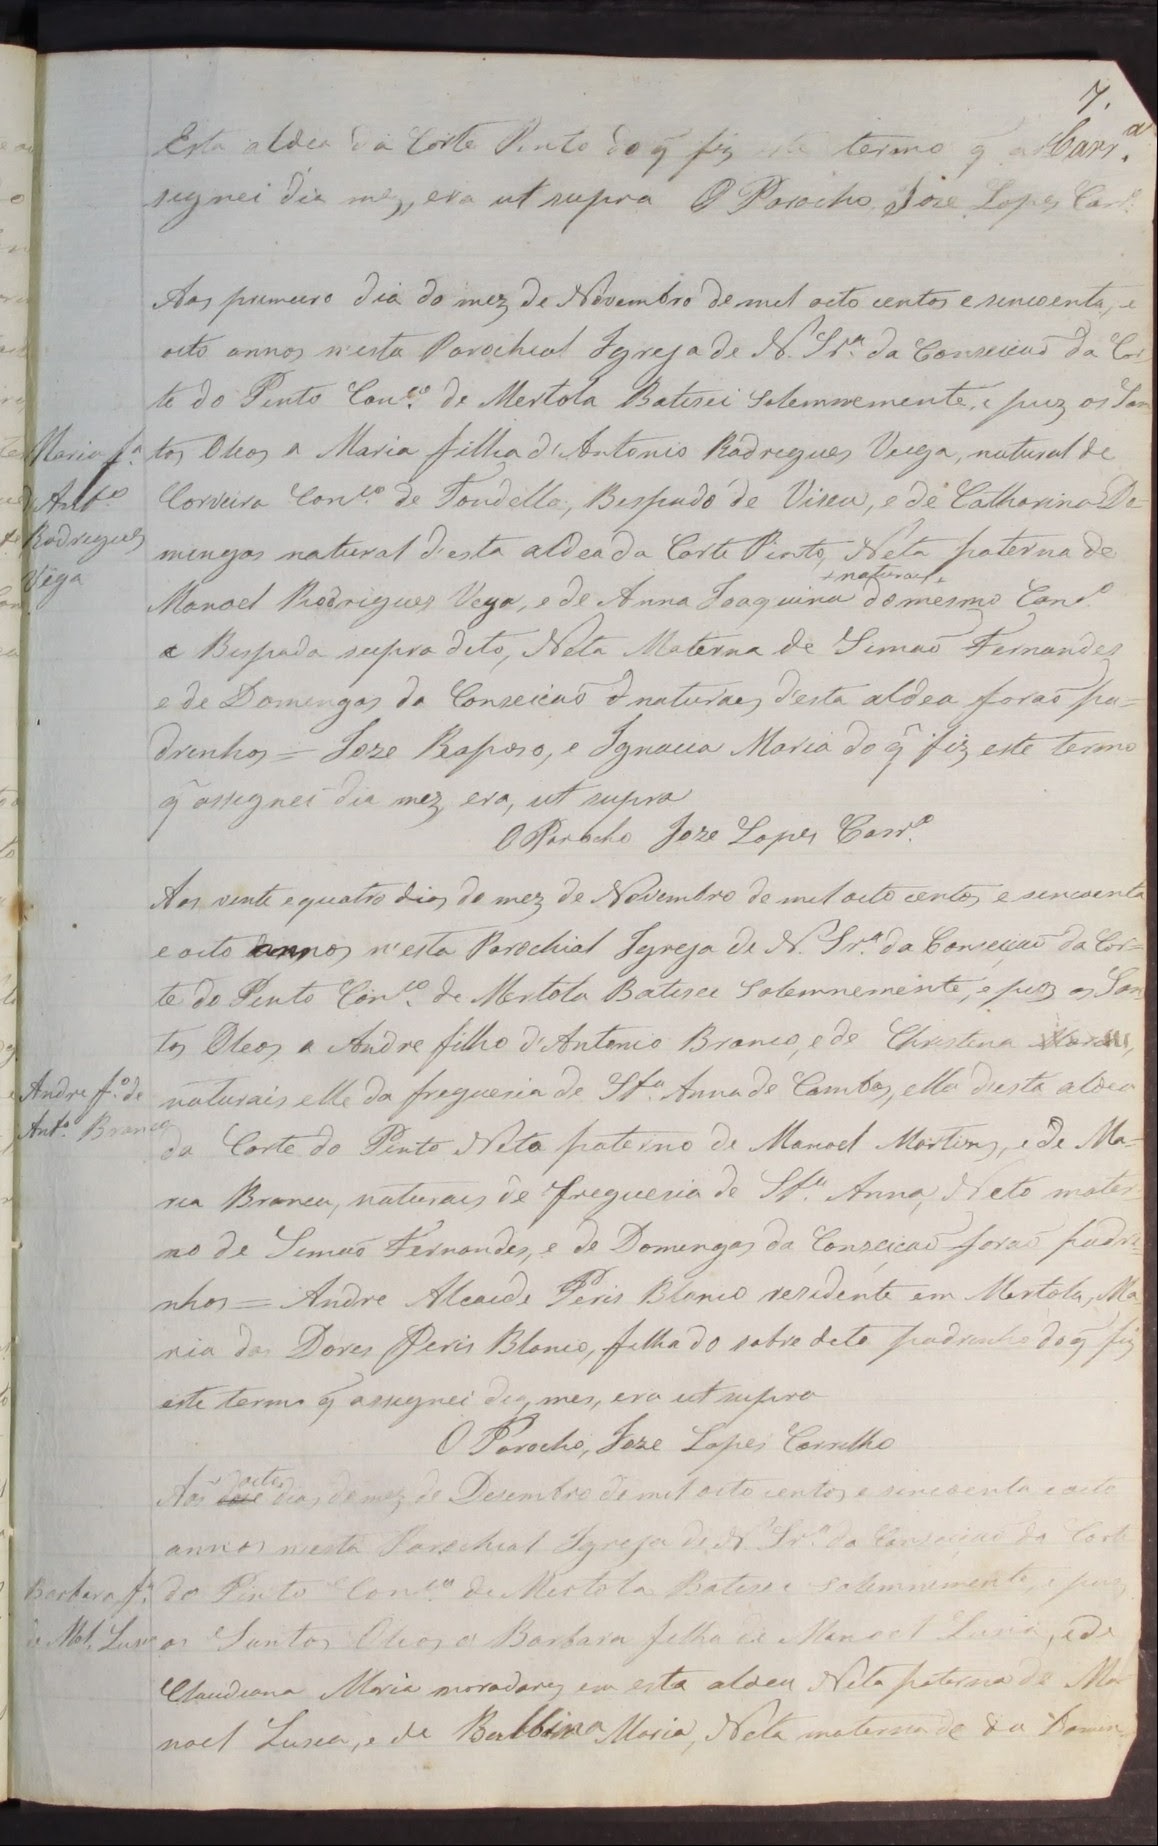 7.
Carr.º
Esta aldea da Corte Pinto do q̃ fiz este termo q̃ as
signei dia mez, era ut supra O Parocho Joze Lopes Carr.º
Aos primeiro dia do mez de Novembro de mil oito centos e sincoenta, e
oito annos n'esta Parochial Igreja de N. Sr.ª da Conseicaõ da Cor
te do Pinto Con.ᶜᵒ de Mertola Batisei Solemnemente, e puz os San
tos Oleos a Maria filha d'Antonio Rodrigues Veiga, natural de
Maria f.ª
d'Ant.º
Rodrigues
Vega
Con.ˡᵒ de Tondella, Bispado de Viseu, e de Catharina Do-
mingas natural d'esta aldea da Corte Pinto, Neta paterna de
Manoel Rodrigues Vega, e de Anna Joaquina + naturaes do mesmo Con.º
e Bispado supra dito, Neta Materna de Simaõ Fernandes
e de Domingas da Conseicaõ naturaes d'esta aldea foraõ pa=
drinhos = Joze Raposo, e Ignacia Maria do q̃ fiz este termo
q̃ assignei dia mez era, ut supra
O Parocho Joze Lopes Carr.º
Aos vinte e quatro dias do mez de Novembro de mil oito centos e sincoenta
e oito annos n'esta Parochial Igreja de N. Sr.ª da Conseicaõ da Cor=
te do Pinto Con.ˡᵒ de Mertola Batisei Solemnemente, e puz os San
tos Oleos a Andre filho d'Antonio Branco, e de Christina
Andre f.º de
Ant.º Branco
naturais elle da freguesia de St.ª Anna de Cambas, ella d'esta aldea
da Corte do Pinto Neto paterno de Manoel Martins, e de Ma=
ria Branca, naturais de freguesia de St.ª Anna, Neto mater
no de Simaõ Fernandes, e de Domingas da Conseiçaõ foraõ padri=
nhos = Andre Alcaide Peris Blanco residente em Mertola, Ma
ria das Dores Peris Blanco, filha do sobre dito padrinho do q̃ fiz
este termo q̃ assignei dia, mes, era ut supra
O Parocho, Joze Lopes Carrilho
Aos oito dias do mez de Desembro de mil oito centos e sincoenta e oito
annos n'esta Parochial Igreja de N. Sr.ª da Conseicaõ da Corte
Barbara f.ª
de Mel. Lusia
do Pinto Con.ˡᵒ de Mertola Batisei Solemnemente, e puz
os Santos Oleos a Barbara filha de Manoel Lusia, e de
Claudiana Maria moradores em esta aldea Neta paterna de Ma
noel Lusia, e de Balbina Maria, Neta materna de